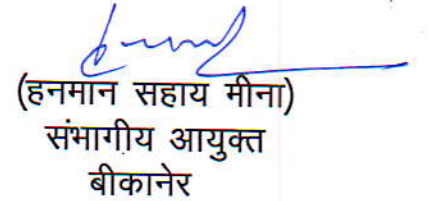 (हनमान सहाय मीना)
संभागीय आयुक्त
बीकानेर